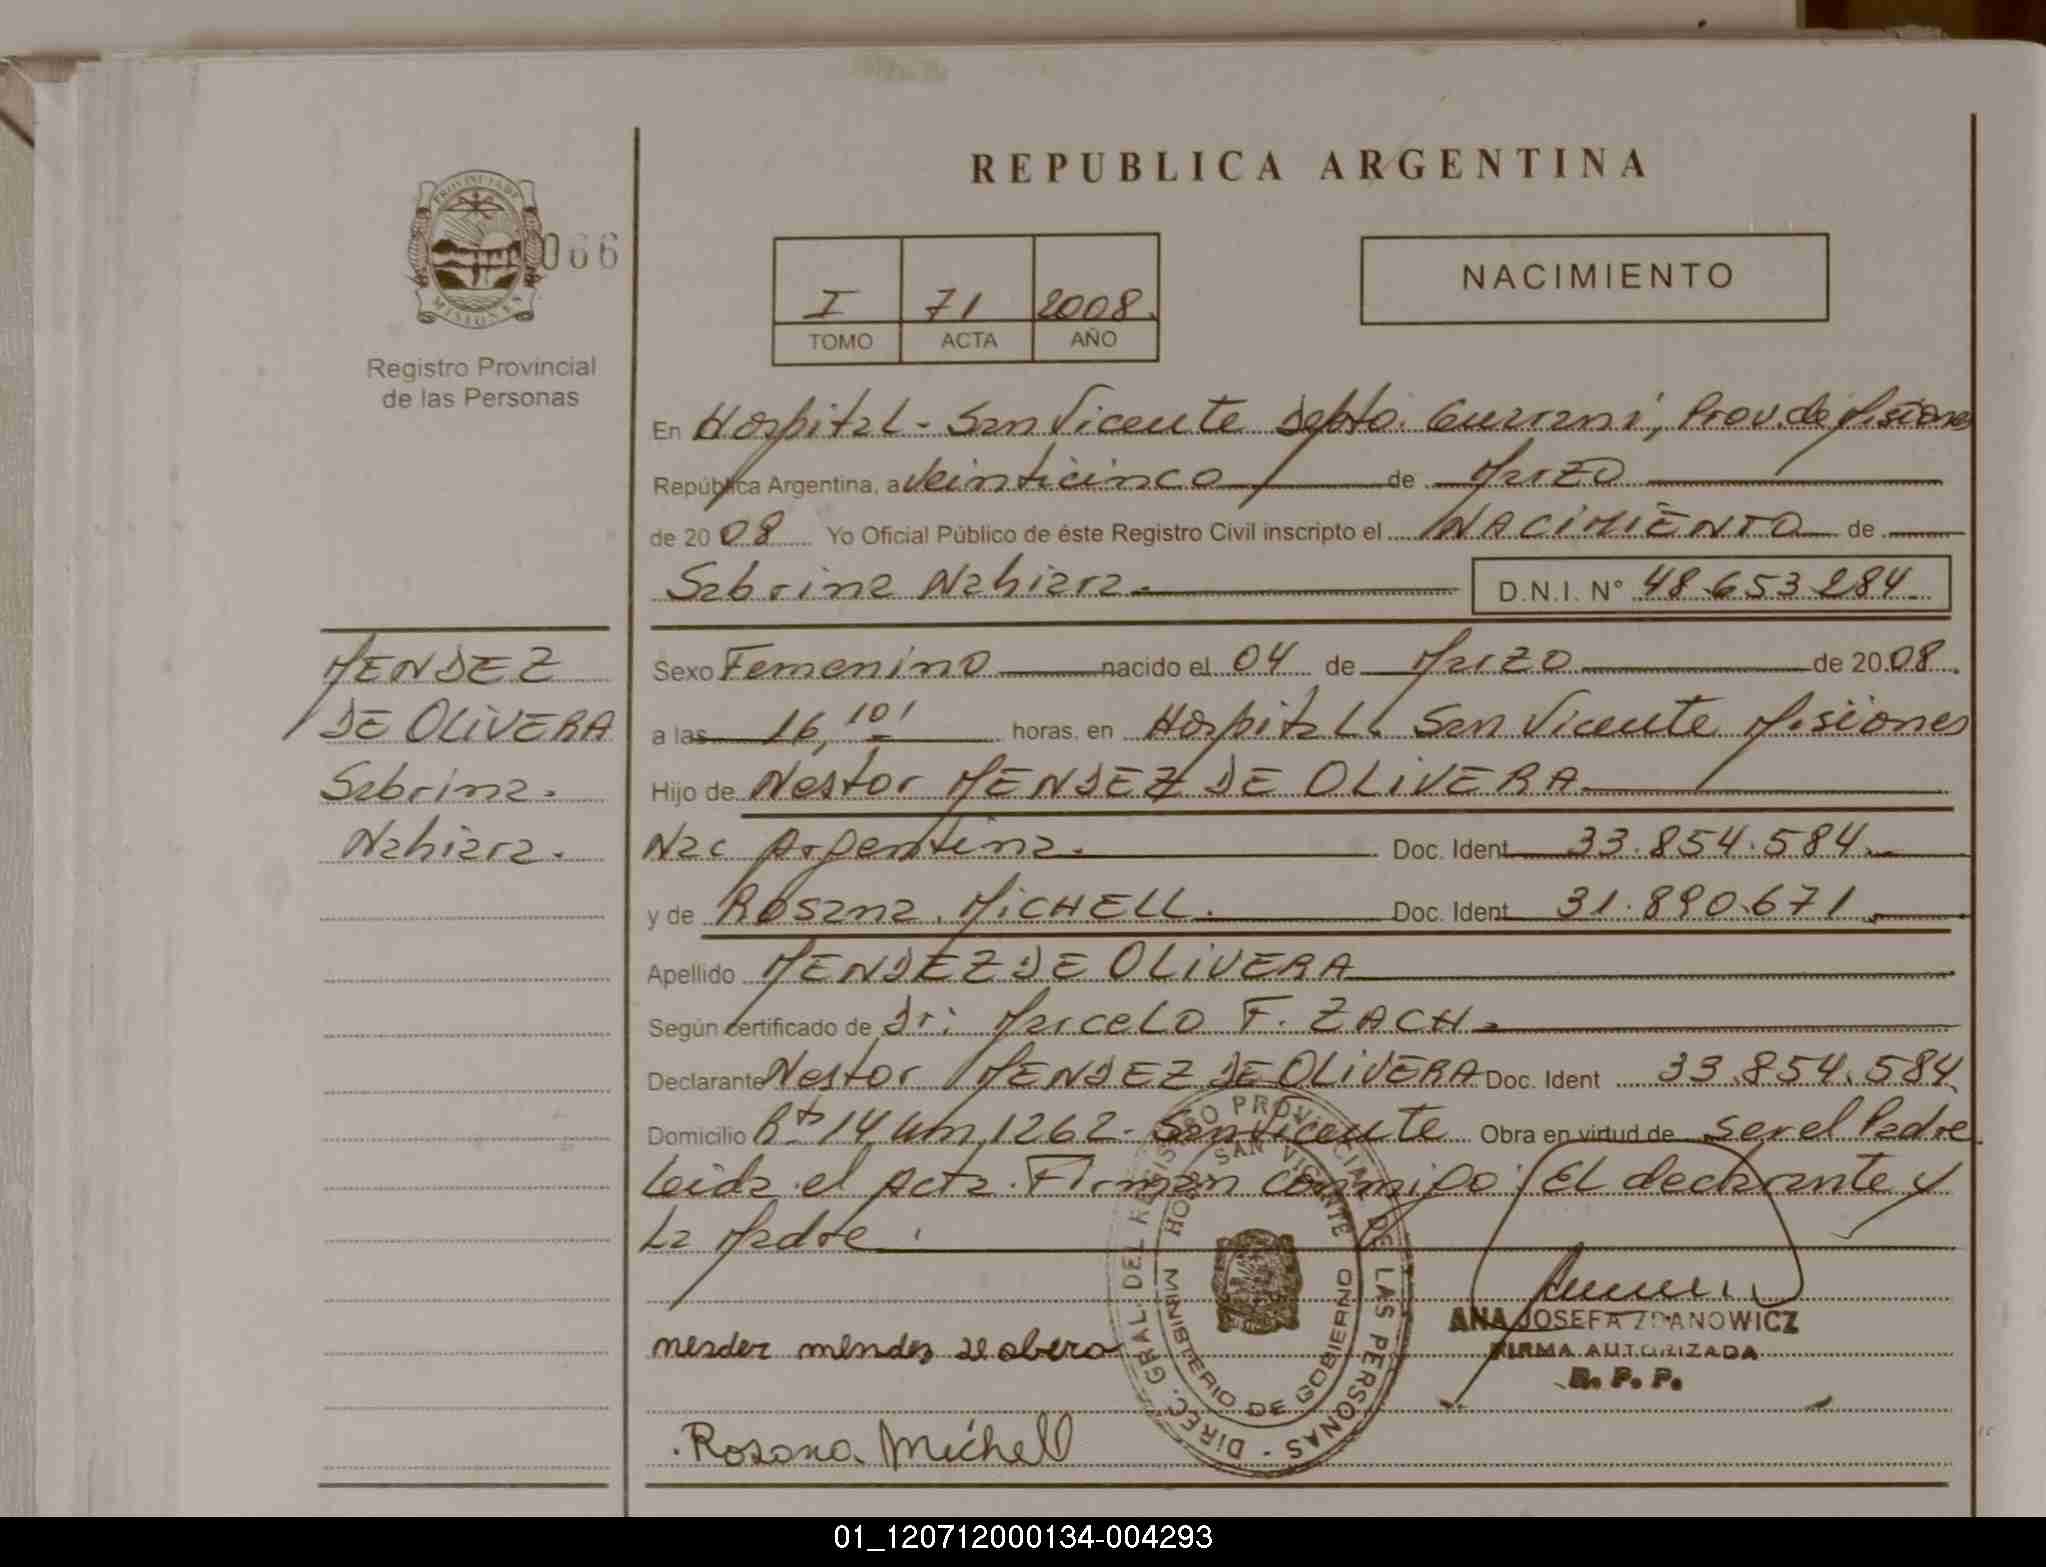 REPUBLICA ARGENTINA
PROVINCIA DE MISIONES
066
Registro Provincial
de las Personas
I 71 2008.
TOMO ACTA AÑO
NACIMIENTO
En Hospital - San Vicente Depto. Guarani, Prov. de Misiones
República Argentina, a veinticinco de Marzo
de 2008 Yo Oficial Público de éste Registro Civil inscripto el NACIMIENTO de
Sabrina Nahiara. D.N.I. Nº 48.653.284
MENDEZ
DE OLIVERA
Sabrina.
Nahiara.
Sexo Femenino nacido el 04 de Marzo de 2008.
a las 16,10' horas, en Hospital. San Vicente Misiones
Hijo de Nestor MENDEZ DE OLIVERA
Nac Argentina. Doc. Ident 33.854.584.
y de Rosana. MICHELL. Doc. Ident 31.890.671
Apellido MENDEZ DE OLIVERA
Según certificado de Dr: Marcelo F. ZACH.
Declarante Nestor MENDEZ DE OLIVERA Doc. Ident 33.854.584
Domicilio Rta 14 Km 1262. San Vicente Obra en virtud de ser el Padre
Leida el Acta. Firman conmigo: El declarante y
La Madre.
DIREC. GRAL. DEL REGISTRO PROVINCIAL DE LAS PERSONAS -
HOSP. SAN VICENTE
MINISTERIO DE GOBIERNO
ANA JOSEFA ZDANOWICZ
FIRMA AUTORIZADA
R. P. P.
mendez
Rosana Michell
01_120712000134-004293